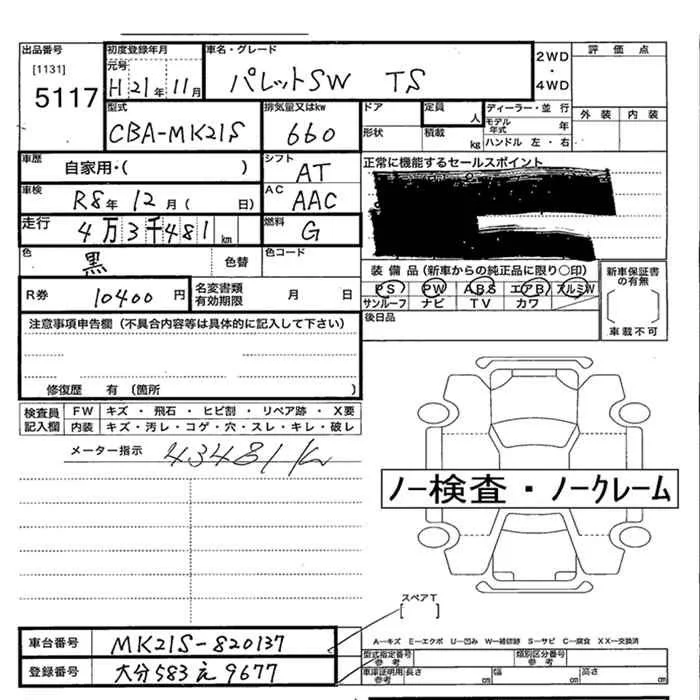 出品番号 初度登録年月 車名・グレード 2WD・4WD 評価点
[1131] 元号
5117 H21年11月 パレットSW TS
型式 排気量又はkw ドア 定員 人 ディーラー・並行 外装 内装
CBA-MK21S 660 形状 積載 kg モデル年式 年
ハンドル 左・右
車歴 自家用・( ) シフト AT 正常に機能するセールスポイント
車検 R8年12月( 日) AC AAC
走行 4万3千481km 燃料 G
色 黒 色替 色コード
装備品(新車からの純正品に限り〇印) 新車保証書の有無
PS PW ABS エアB アルミW
サンルーフ ナビ TV カワ
R券 10400円 名変書類有効期限 月 日 後日品 車載不可
注意事項申告欄(不具合内容等は具体的に記入して下さい)
修復歴 有(箇所 )
検査員記入欄 FW キズ・飛石・ヒビ割・リペア跡・X要
内装 キズ・汚レ・コゲ・穴・スレ・キレ・破レ
メーター指示 43481K
ノー検査・ノークレーム
スペアT
[ ]
車台番号 MK21S-820137
A―キズ E―エクボ U―凹み W―補修跡 S―サビ C―腐食 XX―交換済
型式指定番号 参考 類別区分番号 参考
登録番号 大分583え9677
車庫証明用参考 長さ cm 幅 cm 高さ cm